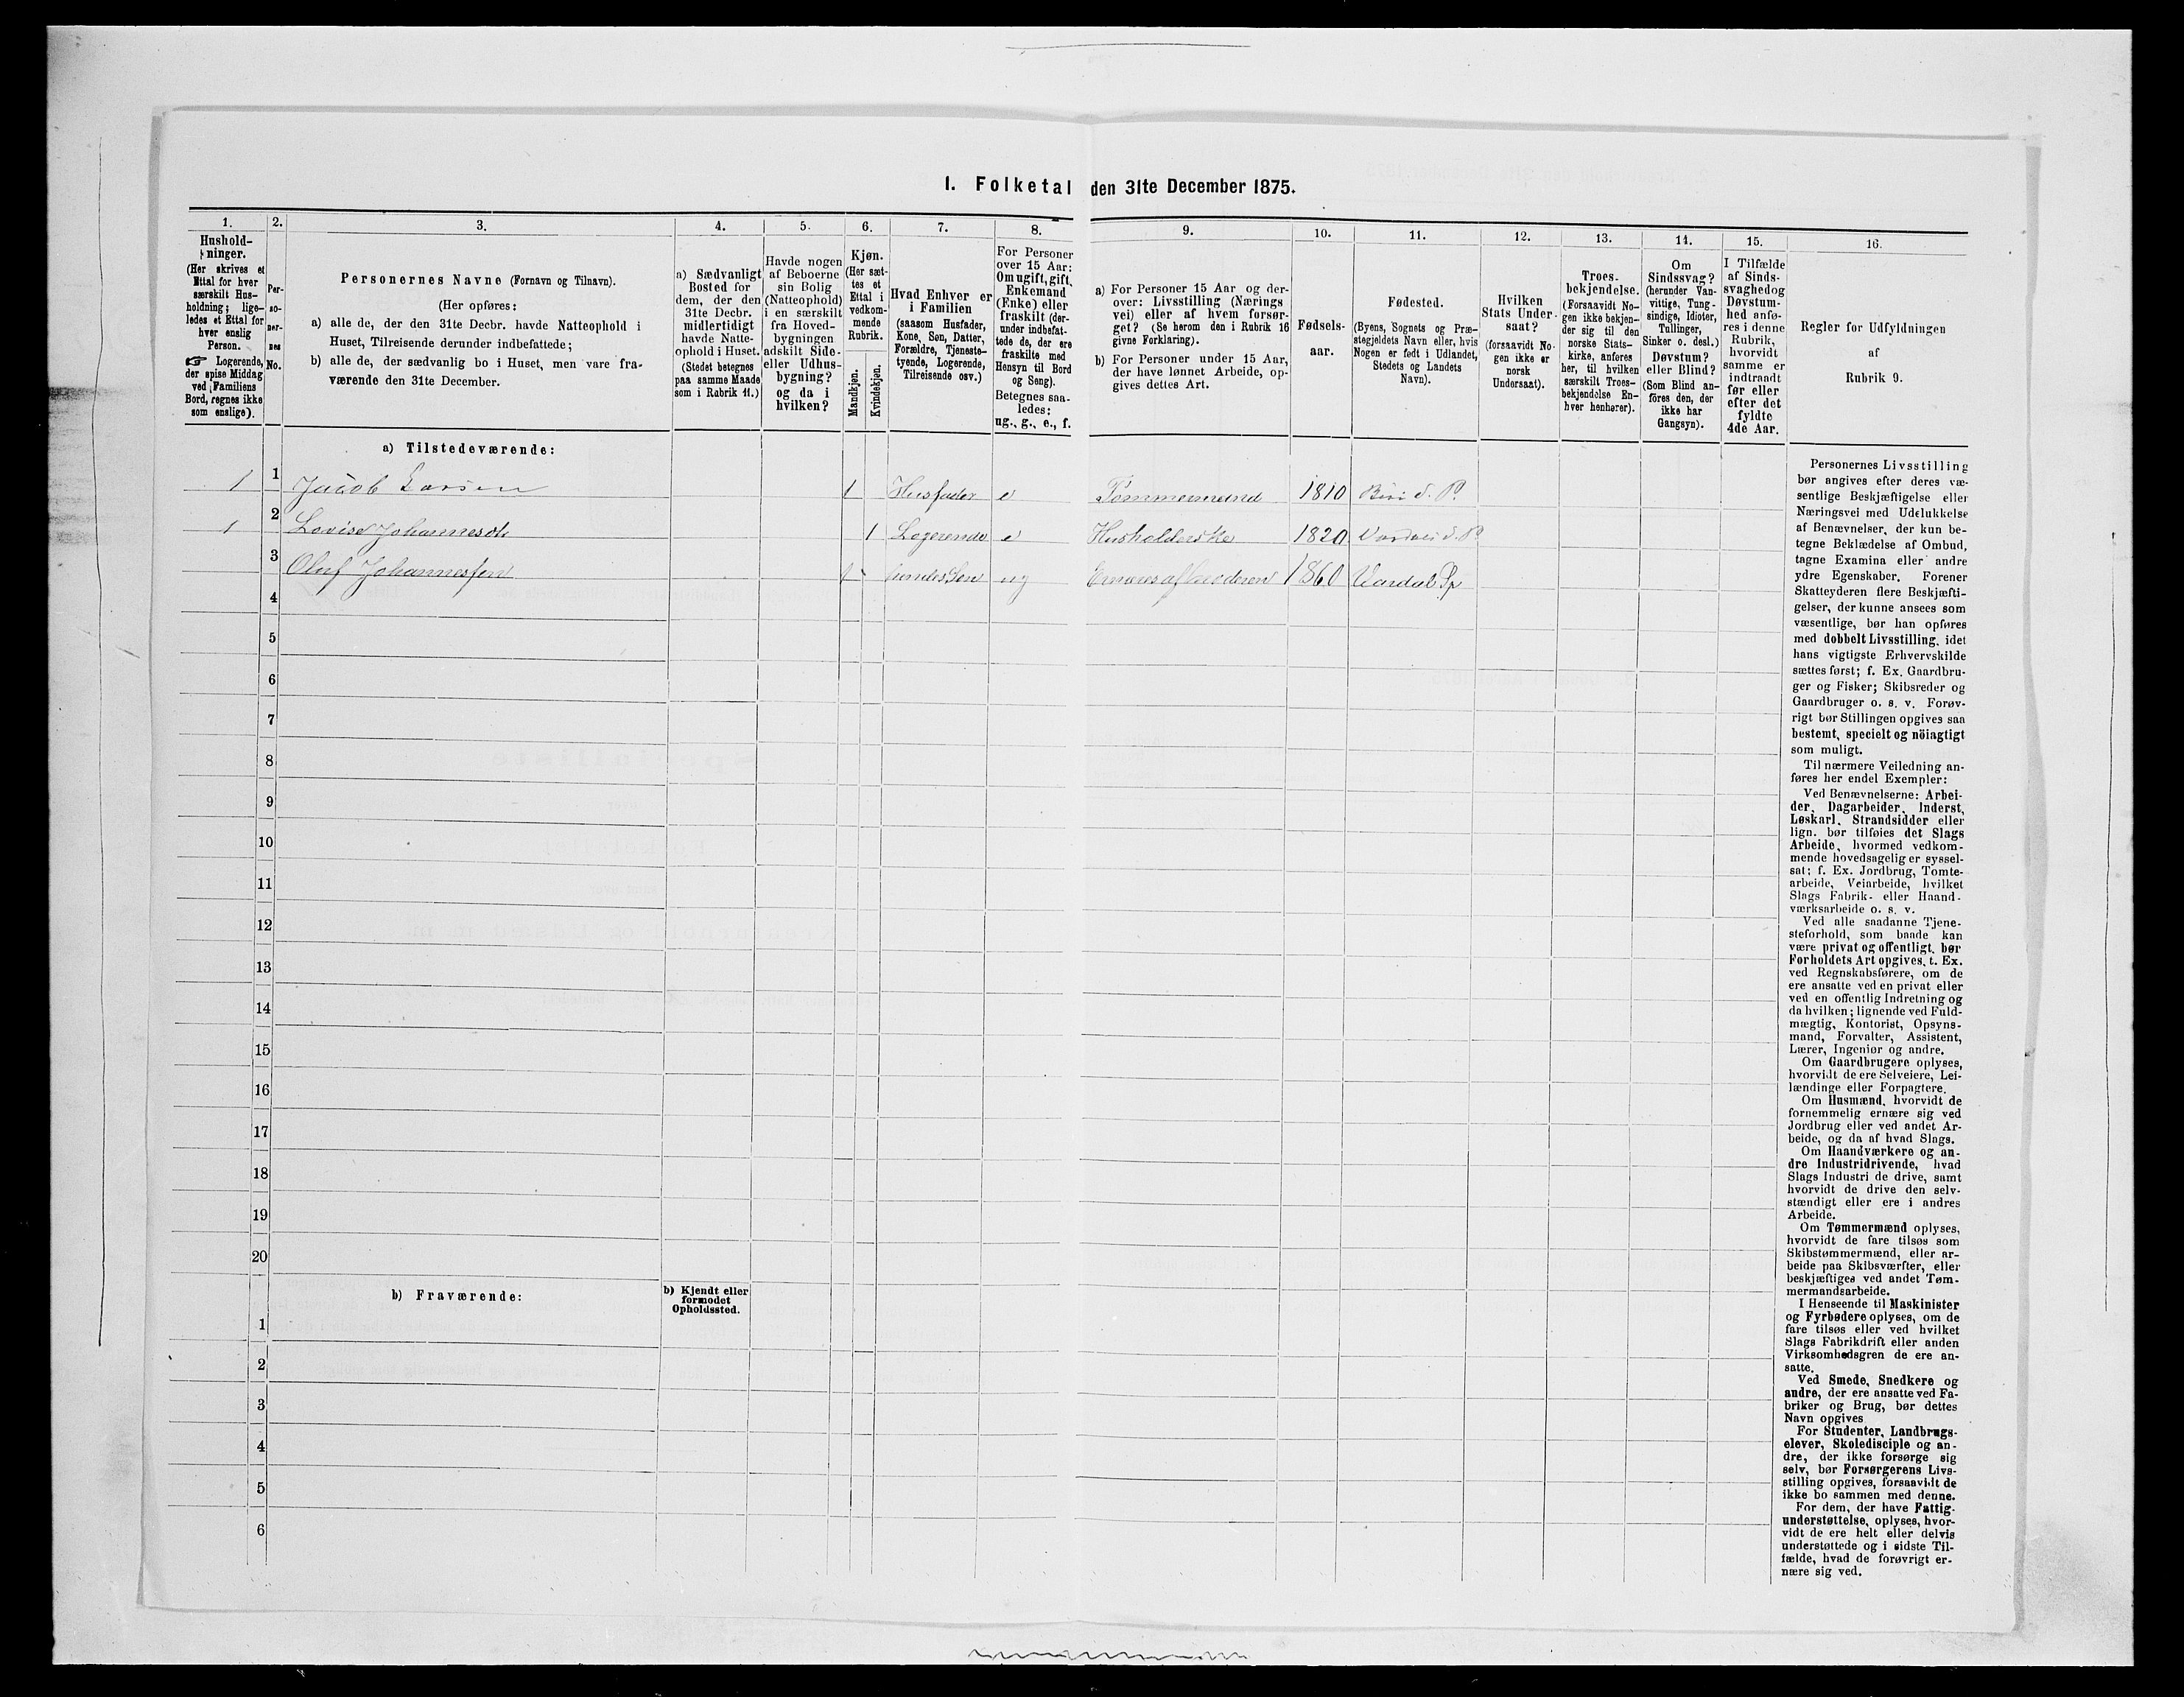 I. Folketal den 31te December 1875.
1.
Hushold-
ninger.
(Her skrives et
Ettal for hver
særskilt Hus-
holdning; lige-
ledes et Ettal for
hver enslig
Person.
☞ Logerende,
der spise Middag
ved Familiens
Bord, regnes ikke
som enslige).
2.
Per-
so-
ner-
nes
No.
3.
Personernes Navne (Fornavn og Tilnavn).
(Her opføres:
a) alle de, der den 31te Decbr. havde Natteophold i
Huset, Tilreisende derunder indbefattede;
b) alle de, der sædvanlig bo i Huset, men vare fra-
værende den 31te December.
4.
a) Sædvanligt
Bosted for
dem, der den
31te Decbr.
midlertidigt
havde Natte-
ophold i Huset.
(Stedet betegnes
paa samme Maade
som i Rubrik 11.)
5.
Havde nogen
af Beboerne
sin Bolig
(Natteophold)
i en særskilt
fra Hoved-
bygningen
adskilt Side-
eller Udhus-
bygning?
og da i
hvilken?
6.
Kjøn.
(Her sæt-
tes et
Ettal i
vedkom-
mende
Rubrik.
Mandkjøn.
Kvindekjøn.
7.
Hvad Enhver er
i Familien
(saasom Husfader,
Kone, Søn, Datter,
Forældre, Tjeneste-
tyende, Logerende,
Tilreisende osv.)
8.
For Personer
over 15 Aar:
Om ugift, gift,
Enkemand
(Enke) eller
fraskilt (der-
under indbefat-
tede de, der ere
fraskilte med
Hensyn til Bord
og Seng).
Betegnes saa-
ledes:
ug., g., e., f.
9.
a) For Personer 15 Aar og der-
over: Livsstilling (Nærings
vei) eller af hvem forsør-
get? (Se herom den i Rubrik 16
givne Forklaring).
b) For Personer under 15 Aar,
der have lønnet Arbeide, op-
gives dettes Art.
10.
Fødsels-
aar.
11.
Fødested.
(Byens, Sognets og Præ-
stegjeldets Navn eller, hvis
Nogen er født i Udlandet,
Stedets og Landets
Navn).
12.
Hvilken
Stats Under-
saat?
(forsaavidt No-
gen ikke er
norsk
Undersaat).
13.
Troes-
bekjendelse.
(Forsaavidt No-
gen ikke bekjen-
der sig til den
norske Stats-
kirke, anføres
her, til hvilken
særskilt Troes-
bekjendelse En-
hver henhører).
14.
Om
Sindssvag?
(herunder Van-
vittige, Tung-
sindige, Idioter,
Tullinger,
Sinker o. desl.)
Døvstum?
eller Blind?
(Som Blind an-
føres den, der
ikke har
Gangsyn).
15.
I Tilfælde
af Sinds-
svaghed og
Døvstum-
hed anfø-
res i denne
Rubrik,
hvorvidt
samme er
indtraadt
før eller
efter det
fyldte
4de Aar.
16.
Regler for Udfyldningen
af
Rubrik 9.
a) Tilstedeværende:
1 1 Jacob Larsen 1 Husfader e Tømmermand 1810 Biri S. P.
1 2 Lovise Johannesdt 1 Logerende e Husholderske 1820 S. P.
3 Oluf Johannessen 1 hendes Søn ug Ernæres af Moderen 1860 Vardal Sp
4
5
6
7
8
9
10
11
12
13
14
15
16
17
18
19
20
b) Fraværende:
b) Kjendt eller
formodet
Opholdssted.
1
2
3
4
5
6
Personernes Livsstilling
bør angives efter deres væ-
sentlige Beskjæftigelse eller
Næringsvei med Udelukkelse
af Benævnelser, der kun be-
tegne Beklædelse af Ombud,
tagne Examina eller andre
ydre Egenskaber. Forener
Skatteyderen flere Beskjæfti-
gelser, der kunne ansees som
væsentlige, bør han opføres
med dobbelt Livsstilling, idet
hans vigtigste Erhvervskilde
sættes først; f. Ex. Gaardbru-
ger og Fisker; Skibsreder og
Gaardbruger o. s. v. Forøv-
rigt bør Stillingen opgives saa
bestemt, specielt og nöiagtigt
som muligt.
Til nærmere Veiledning an-
føres her endel Exempler:
Ved Benævnelserne: Arbei-
der, Dagarbeider, Inderst,
Løskarl, Strandsidder eller
lign. bør tilføies det Slags
Arbeide, hvormed vedkom-
mende hovedsagelig er syssel-
sat; f. Ex. Jordbrug, Tomte-
arbeide, Veiarbeide, hvilket
Slags Fabrik- eller Haand-
værksarbeide o. s. v.
Ved alle saadanne Tjene-
steforhold, som baade kan
være privat og offentligt, bør
Forholdets Art opgives, t. Ex.
ved Regnskabsførere, om de
ere ansatte ved en privat eller
ved en offentlig Indretning og
da hvilken; lignende ved Fuld-
mægtig, Kontorist, Opsyns-
mand, Forvalter, Assistent,
Lærer, Ingeniør og andre.
Om Gaardbrugere oplyses,
hvorvidt de ere Selveiere, Lei-
lændinge eller Forpagtere.
Om Husmænd, hvorvidt de
fornemmelig ernære sig ved
Jordbrug eller ved andet Ar-
beide, og da af hvad Slags.
Om Haandværkere og an-
dre Industridrivende, hvad
Slags Industri de drive, samt
hvorvidt de drive den selv-
stændigt eller ere i andres
Arbeide.
Om Tømmermænd oplyses,
hvorvidt de fare tilsøs som
Skibstømmermænd, eller ar-
beide paa Skibsværfter, eller
beskjæftiges ved andet Tøm-
mermandsarbeide.
I Henseende til Maskinister
og Fyrbødere oplyses, om de
fare tilsøs eller ved hvilket
Slags Fabrikdrift eller anden
Virksomhedsgren de ere an-
satte.
Ved Smede, Snedkere og
andre, der ere ansatte ved Fa-
briker og Brug, bør dettes
Navn opgives
For Studenter, Landbrugs-
elever, Skoledisciple og an-
dre, der ikke forsørge sig
selv, bør Forsørgerens Livs-
stilling opgives, forsaavidt de
ikke bo sammen med denne.
For dem, der have Fattig-
understøttelse, oplyses, hvor-
vidt de ere helt eller delvis
understøttede og i sidste Til-
fælde, hvad de forøvrigt er-
nære sig ved.